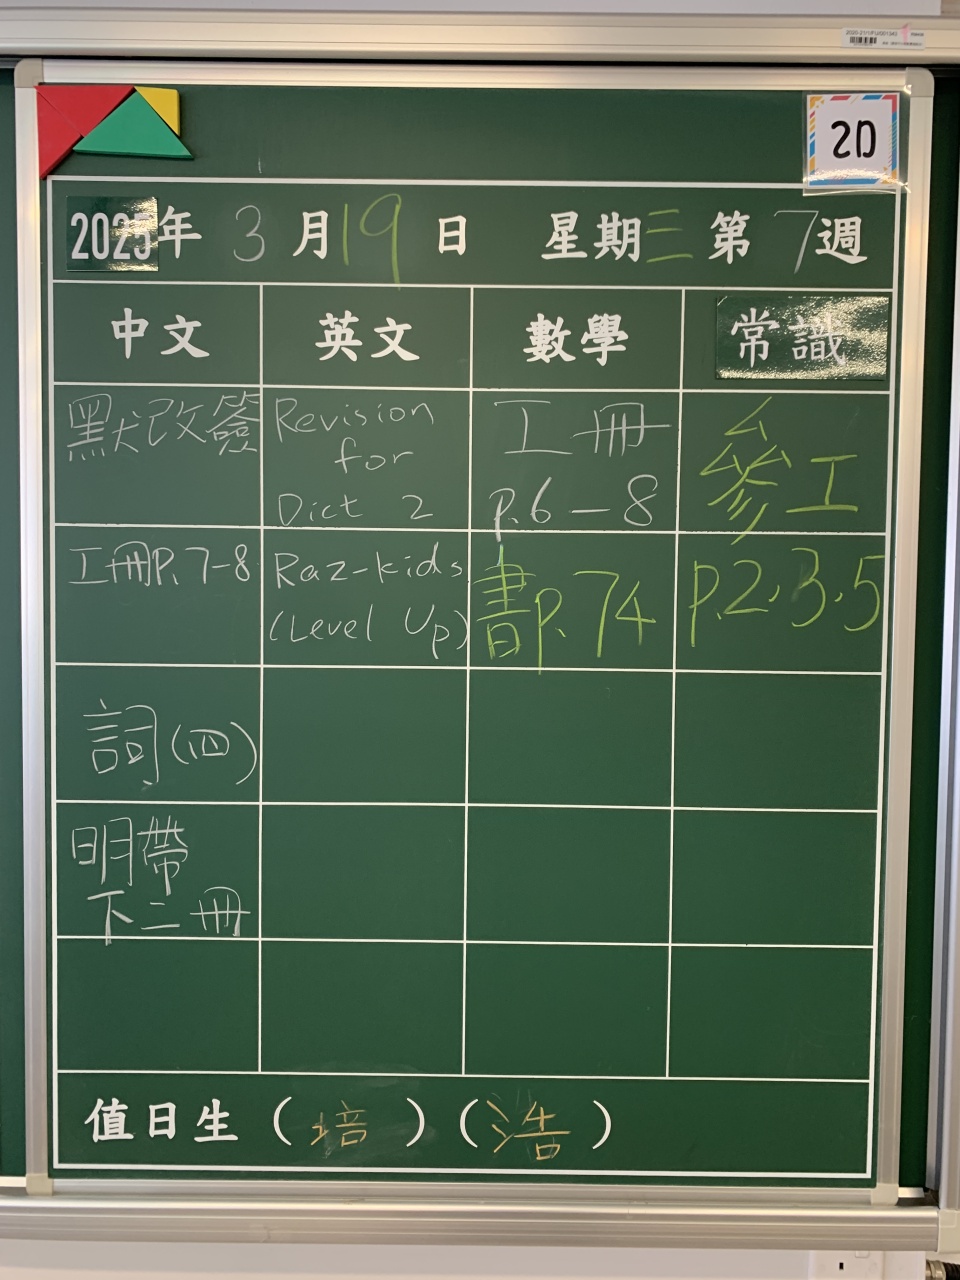 2D
2025年 3 月 19 日 星期三 第 7 週
中文 英文 數學 常識
默改簽
Revision
for
Dict 2
工冊
p.6-8
參工
工冊P.7-8
Raz-kids
(Level Up)
書p.74
p.2,3,5
詞(四)
明帶
下二冊
值日生 (培) (浩)